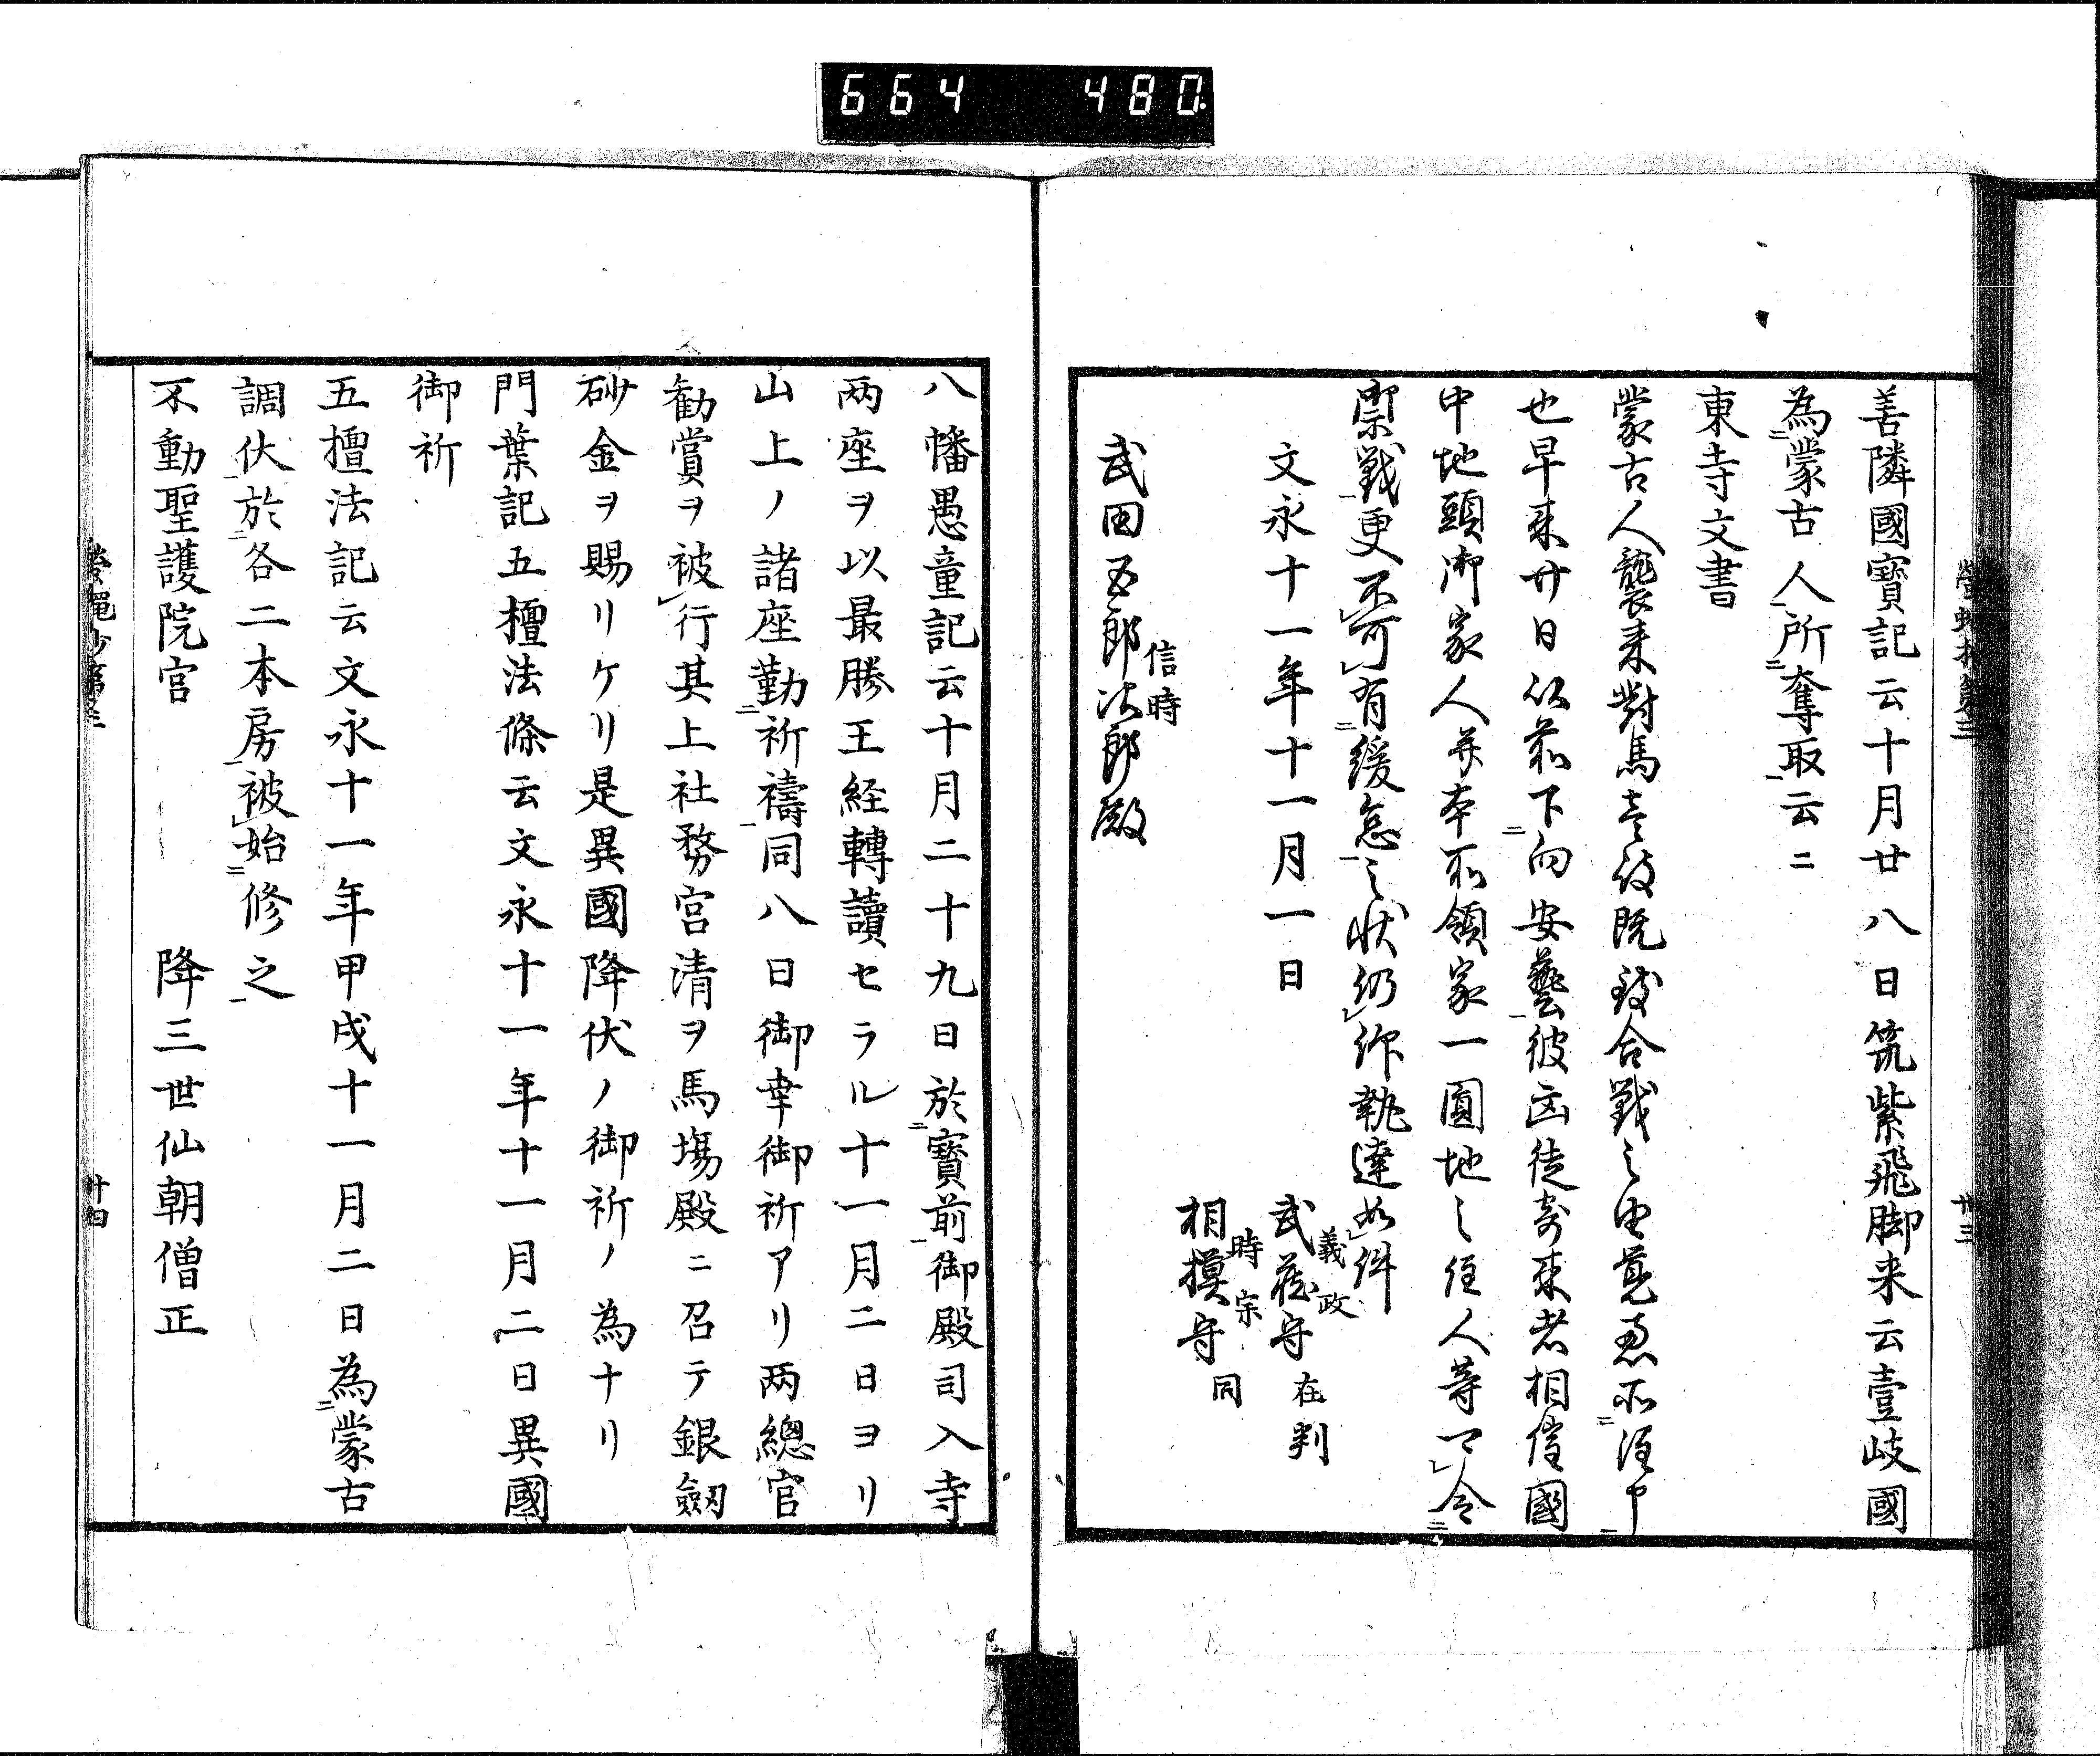 664 480
善隣國寶記云十月廿八日筑紫飛脚来云壹岐國
為蒙古人所奪取云ニ
東寺文書
蒙古人襲来對馬壱岐既致合戰之由覚恵所注申
也早来廿日以前下向安藝彼凶徒寄来者相催國
中地頭御家人并本所領家一圓地之住人等可令
禦戰更不可有緩怠之状仍仰執達如件
文永十一年十一月一日
武藏守在判
義政
相摸守同
時宗
武田五郎次郎殿
信時
八幡愚童記云十月二十九日於寳前御殿司入寺
两座ヲ以最勝王経轉讀セラル十一月二日ヨリ
山上ノ諸座勤祈禱同八日御幸御祈アリ两總官
勧賞ヲ被行其上社務宮清ヲ馬塲殿ニ召テ銀劔
砂金ヲ賜リケリ是異國降伏ノ御祈ノ為ナリ
門葉記五檀法條云文永十一年十一月二日異國
御祈
五檀法記云文永十一年甲戌十一月二日為蒙古
調伏於各二本房被始修之
不動聖護院宮 降三世仙朝僧正
廿四